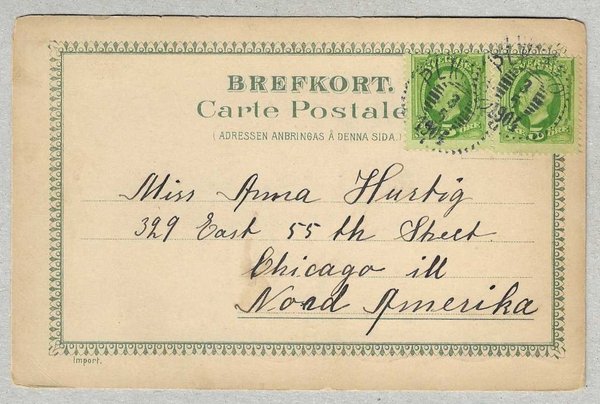 BREFKORT.
Carte Postale
(ADRESSEN ANBRINGAS Å DENNA SIDA.)
Miss Anna Hurtig
329 East 55 th Street
Chicago ill
Nord Amerika
Import.